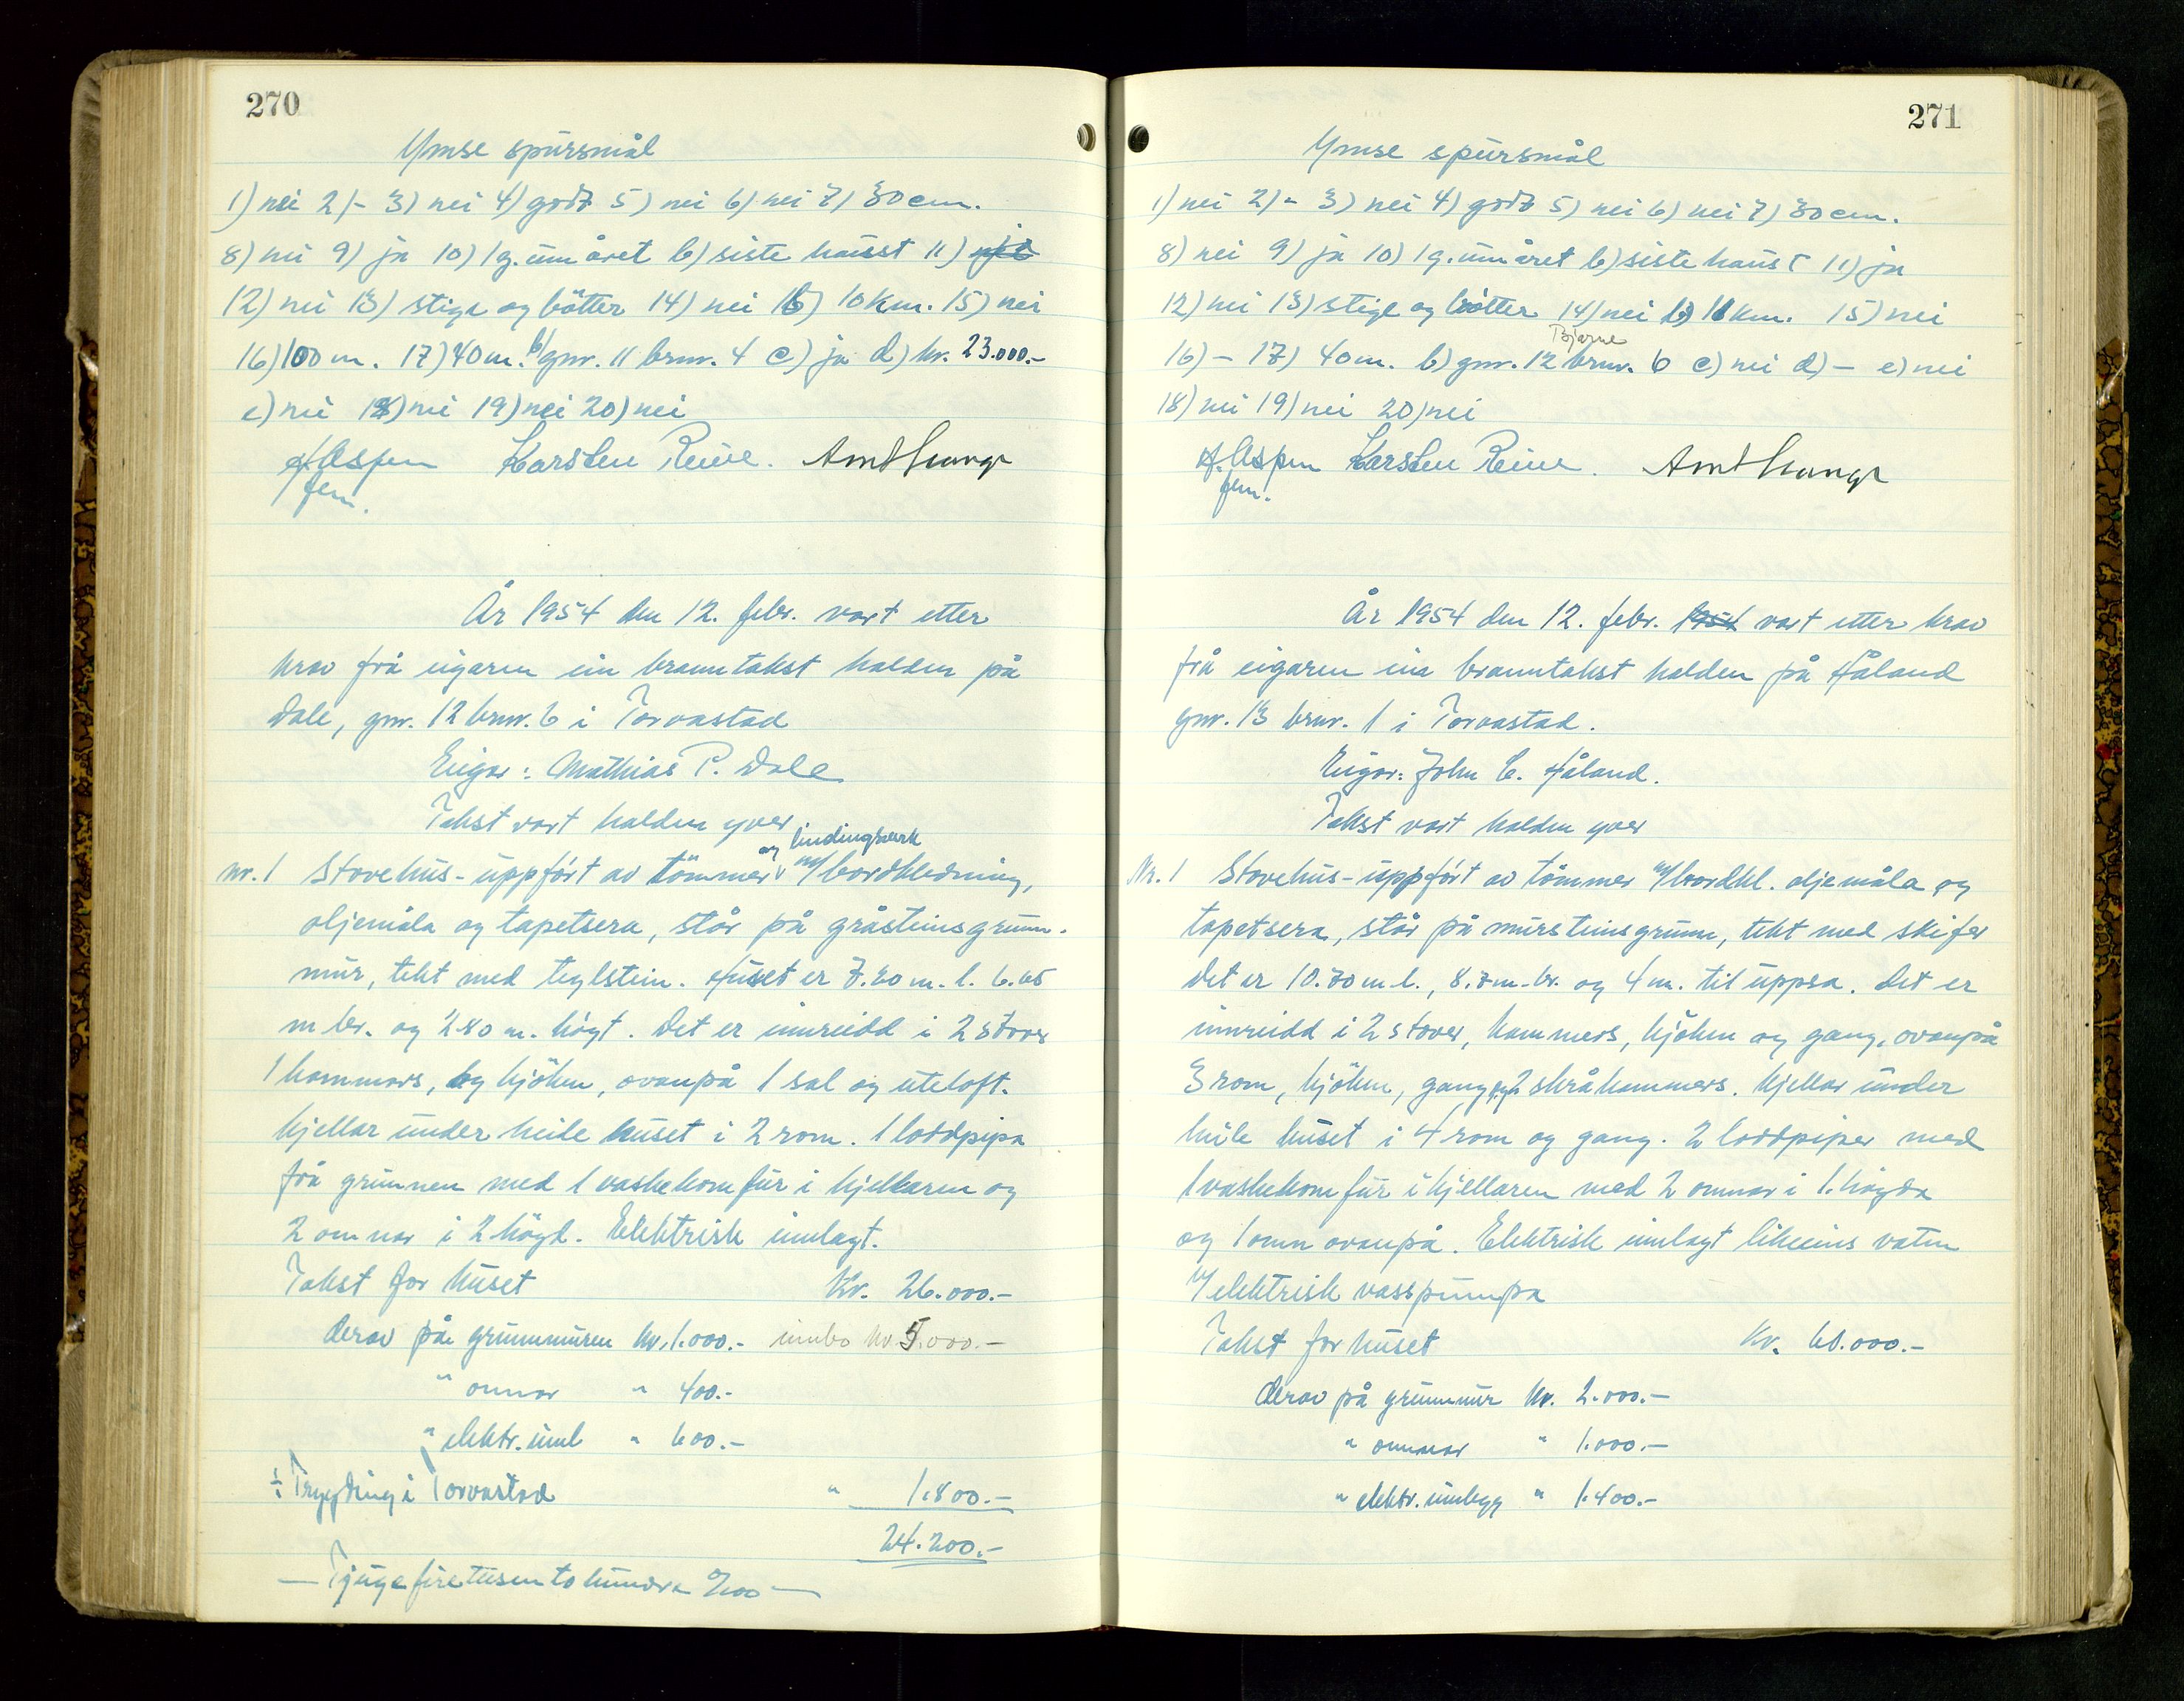 270
Ymse spursmål
1) nei 2) - 3) nei 4) godt 5) nei 6) nei 7) 30 cm.
8) nei 9) ja 10) 1 g. um året b) siste haust 11)
12) nei 13) stige og bøtter 14) nei b) 10 km. 15) nei
16) 100 m. 17) 40 m. b) gnr. 11 brnr. 4 c) ja d) kr. 23.000.-
e) nei 18) nei 19) nei 20) nei
H. Aspen Karsten Reine.
fem.
År 1954 den 12. febr. vart etter
krav frå eigaren ein branntakst halden på
Dale, gnr. 12 brnr. 6 i Torvastad
Eigar: Mathias P. Dale
Takst vart halden yver
og bindingsverk
nr. 1 Stovehus - uppført av tømmer m/bordkledning,
oljemåla og tapetsera, står på gråsteinsgrunn-
mur, tekt med teglstein. Huset er 7.20 m. l. 6.65
m br. og 2.80 m. høgt. Det er innreidd i 2 stover
1 kammers, og kjøken, ovanpå 1 sal og uteloft.
Kjellar under heile huset i 2 rom. 1 loddpipa
frå grunnen med 1 vaskekomfur i kjellaren og
2 omnar i 2 høgd. Elektrisk innlagt.
Takst for huset Kr. 26.000.-
derav på grunnmuren kr. 1.000.- innbo kr. 5.000.-
" omnar " 400.-
" elektr. innl " 600.-
÷ Trygding i Torvastad " 1.800.-
24.200.-
— Tjugefiretusentohundra 0/00 —
271
Ymse spursmål
1) nei 2) - 3) nei 4) godt 5) nei 6) nei 7) 30 cm.
8) nei 9) ja 10) 1 g. um året b) siste haust 11) ja
12) nei 13) stige og bøtter 14) nei b) 11 km. 15) nei
Bjarne
16) - 17) 40 m. b) gnr. 12 brnr. 6 c) nei d) - e) nei
18) nei 19) nei 20) nei
H. Aspen Karsten Reine.
fem.
År 1954 den 12. febr. 1954 vart etter krav
frå eigaren ein branntakst halden på Håland
gnr. 13 brnr. 1 i Torvastad.
Eigar: John C. Håland.
Takst vart halden yver
Nr. 1 Stovehus - uppført av tømmer m/bordkl. oljemåla og
tapetsera, står på mursteinsgrunn, tekt med skifer
Det er 10.70 m l., 8.7 m. br. og 4 m. til uppsa. Det er
innreidd i 2 stover, kammers, kjøken og gang, ovanpå
3 rom, kjøken, gang og 2 skråkammers. Kjellar under
heile huset i 4 rom og gang. 2 loddpiper med
1 vaskekomfur i kjellaren med 2 omnar i 1. høgda
og 1 omn ovanpå. Elektrisk innlagt likeeins vatn
m/elektrisk vasspumpa
Takst for huset Kr. 60.000.-
derav på grunnmur kr. 2.000.-
" omnar " 1.000.-
" elektr. innlegg " 1.400.-